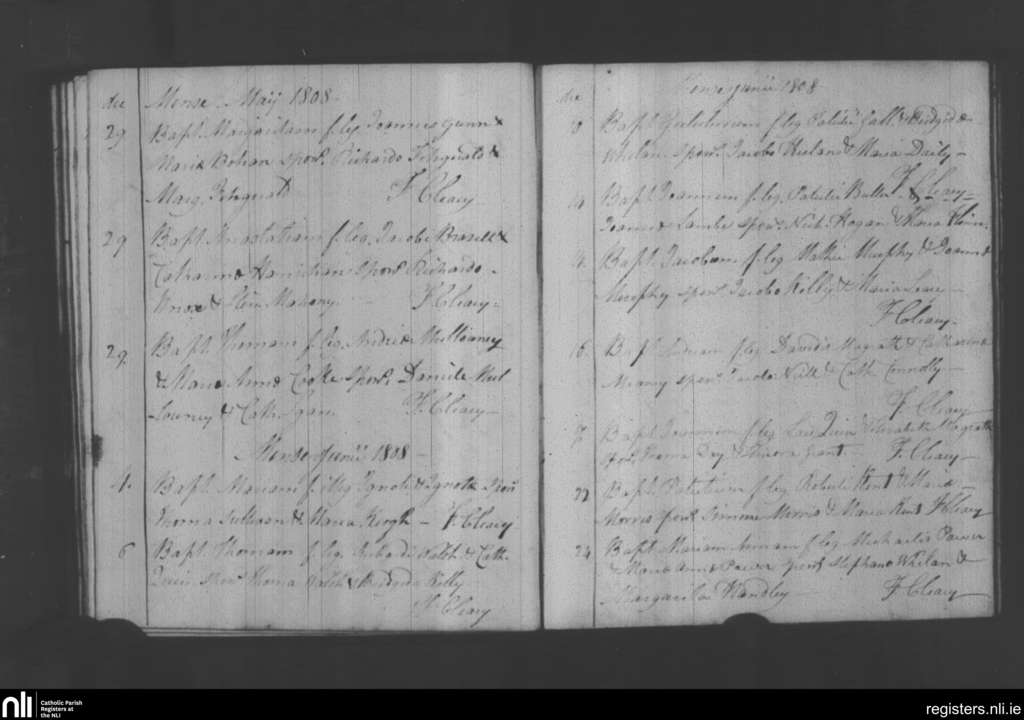 die Mense Maij 1808
29 Bapt. Margaritam f. leg. Joannis Gunn &
Maria Bohan spons. Richardo Fitzgerald &
Marg. Fitzgerald F. Cleary
29 Bapt. Anastatiam f. leg. Jacobi Brasell &
Catharina Hanrahan spons. Richardo
Mahony F. Cleary
29. Bapt. Thomam f. leg. Andrea Mullowney
& Maria Anna Cooke spons. Daniele Mul
lowney & Cath. F. Cleary
Mense Junii 1808
4. Bapt. Mariam f. illeg. Ignoti & Ignota spons
Thoma Sullivan & Maria Keogh F. Cleary
6 Bapt. Thomam f. leg. Walsh & Cath.
Quin spons. Thoma Walsh & Brigida Kelly
F. Cleary
die Mense Junii 1808
Bapt. Gulielmum f. leg. Patritii Gall & Bridgida
Whelan spons. Jacobo & Maria Daily
F. Cleary
14 Bapt. Joannem f. leg. Patritii Butler &
Joanna Lambe spons. Nich. Hogan & Maria
Bapt. Jacobum f. leg. Mathei Murphy & Joanna
Murphy spons. Jacobo Kelly & Maria
F. Cleary
16. Bapt. f. leg. Davidis Magrath & Catharina
Meany spons. Jacobo Neill & Cath. Connolly
F. Cleary
Bapt. Joannem f. leg. Quin & Elizabeth Magrath
spons. Thoma Day & Grant F. Cleary
22 Bapt. Patritium f. leg. Roberti Kent & Maria
Morris spons. Simone Morris & Maria Kent F. Cleary
24 Bapt. Mariam Annam f. leg. Michaelis Power
& Maria Anna Power spons. Stephano Whelan &
Margarita Handley F. Cleary
nli
Catholic Parish
Registers at
the NLI
registers.nli.ie